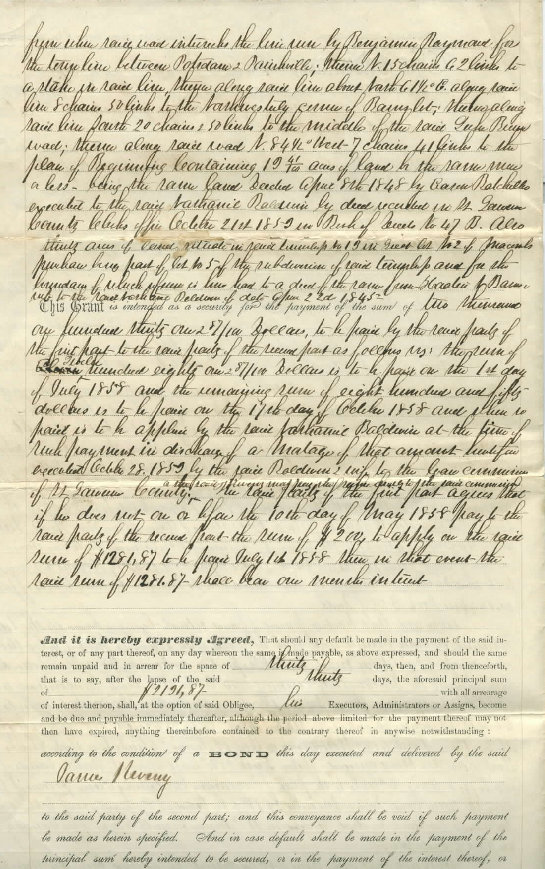 from when said road intersects the line run by Benjamin Raymond for
the town line between Potsdam & Pairshville; thence N. 15 chains 62 links to
a stake in said line, thence along said line about North 61½° E. along said
line 8 chains 50 links to the corner of ; thence along
said line South 20 chains & 50 links to the middle of the said
road; thence along said road N. 84½° West 7 chains 41 links to the
place of Beginning Containing 19 acres of land be the same more
or less - being the same land Deeded April 8th 1848 by
executed to the said Nathaniel Baldwin by deed recorded in St. Lawrence
County Clerks office October 21st 1853 in Book of Deeds No 47 B. Also
thirty acres of land situate in said township No 13 in Great lot No 2 of Macombs
purchase being part of lot No 5 of the subdivision of said township and for the
boundary of which reference is here had to a deed of the same from
to the said Nathaniel Baldwin of date April 22d 1845
This Grant is intended as a security for the payment of the sum of two thousand
one hundred thirty one 87/100 Dollars, to be paid by the said party of
the first part to the said party of the second part as follows viz: the sum of
Twelve hundred eighty one 87/100 Dollars is to be paid on the 1st day
of July 1858 and the remaining sum of eight hundred and fifty
dollars is to be paid on the 17th day of October 1858 and when so
paid is to be applied by the said Nathaniel Baldwin at the time of
such payment in discharge of a Mortgage of that amount
executed October 28, 1853, by the said Baldwin & wife to the Loan commissioners
of St Lawrence County. The said party of the first part agrees that
if he does not on or before the 10th day of May 1858 pay to the
said party of the second part the sum of $200, to apply on the said
sum of $1281,87 to be paid July 1st 1858 then in that event the
said sum of $1281.87 shall bear one months interest
And it is hereby expressly Agreed, That should any default be made in the payment of the said in-
terest, or of any part thereof, on any day whereon the same is made payable, as above expressed, and should the same
remain unpaid and in arrear for the space of Thirty days, then, and from thenceforth,
that is to say, after the lapse of the said Thirty days, the aforesaid principal sum
of $2131,87 with all arrearage
of interest thereon, shall, at the option of said Obligee, his Executors, Administrators or Assigns, become
and be due and payable immediately thereafter, although the period above limited for the payment thereof may not
then have expired, anything thereinbefore contained to the contrary thereof in anywise notwithstanding:
according to the condition of a BOND this day executed and delivered by the said
James
to the said party of the second part; and this conveyance shall be void if such payment
be made as herein specified. And in case default shall be made in the payment of the
principal sum hereby intended to be secured, or in the payment of the interest thereof, or